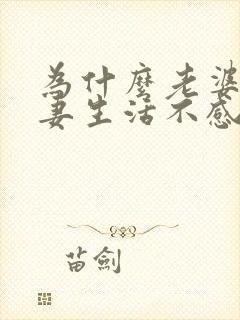 為什麼老婆
妻生活不感
苗劍